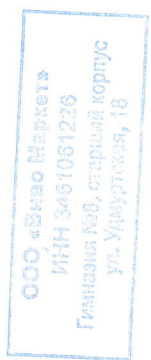 ООО «Виво Маркет»
ИНН 3461061226
Гимназия №8, старший корпус
ул. Удмуртская, 18